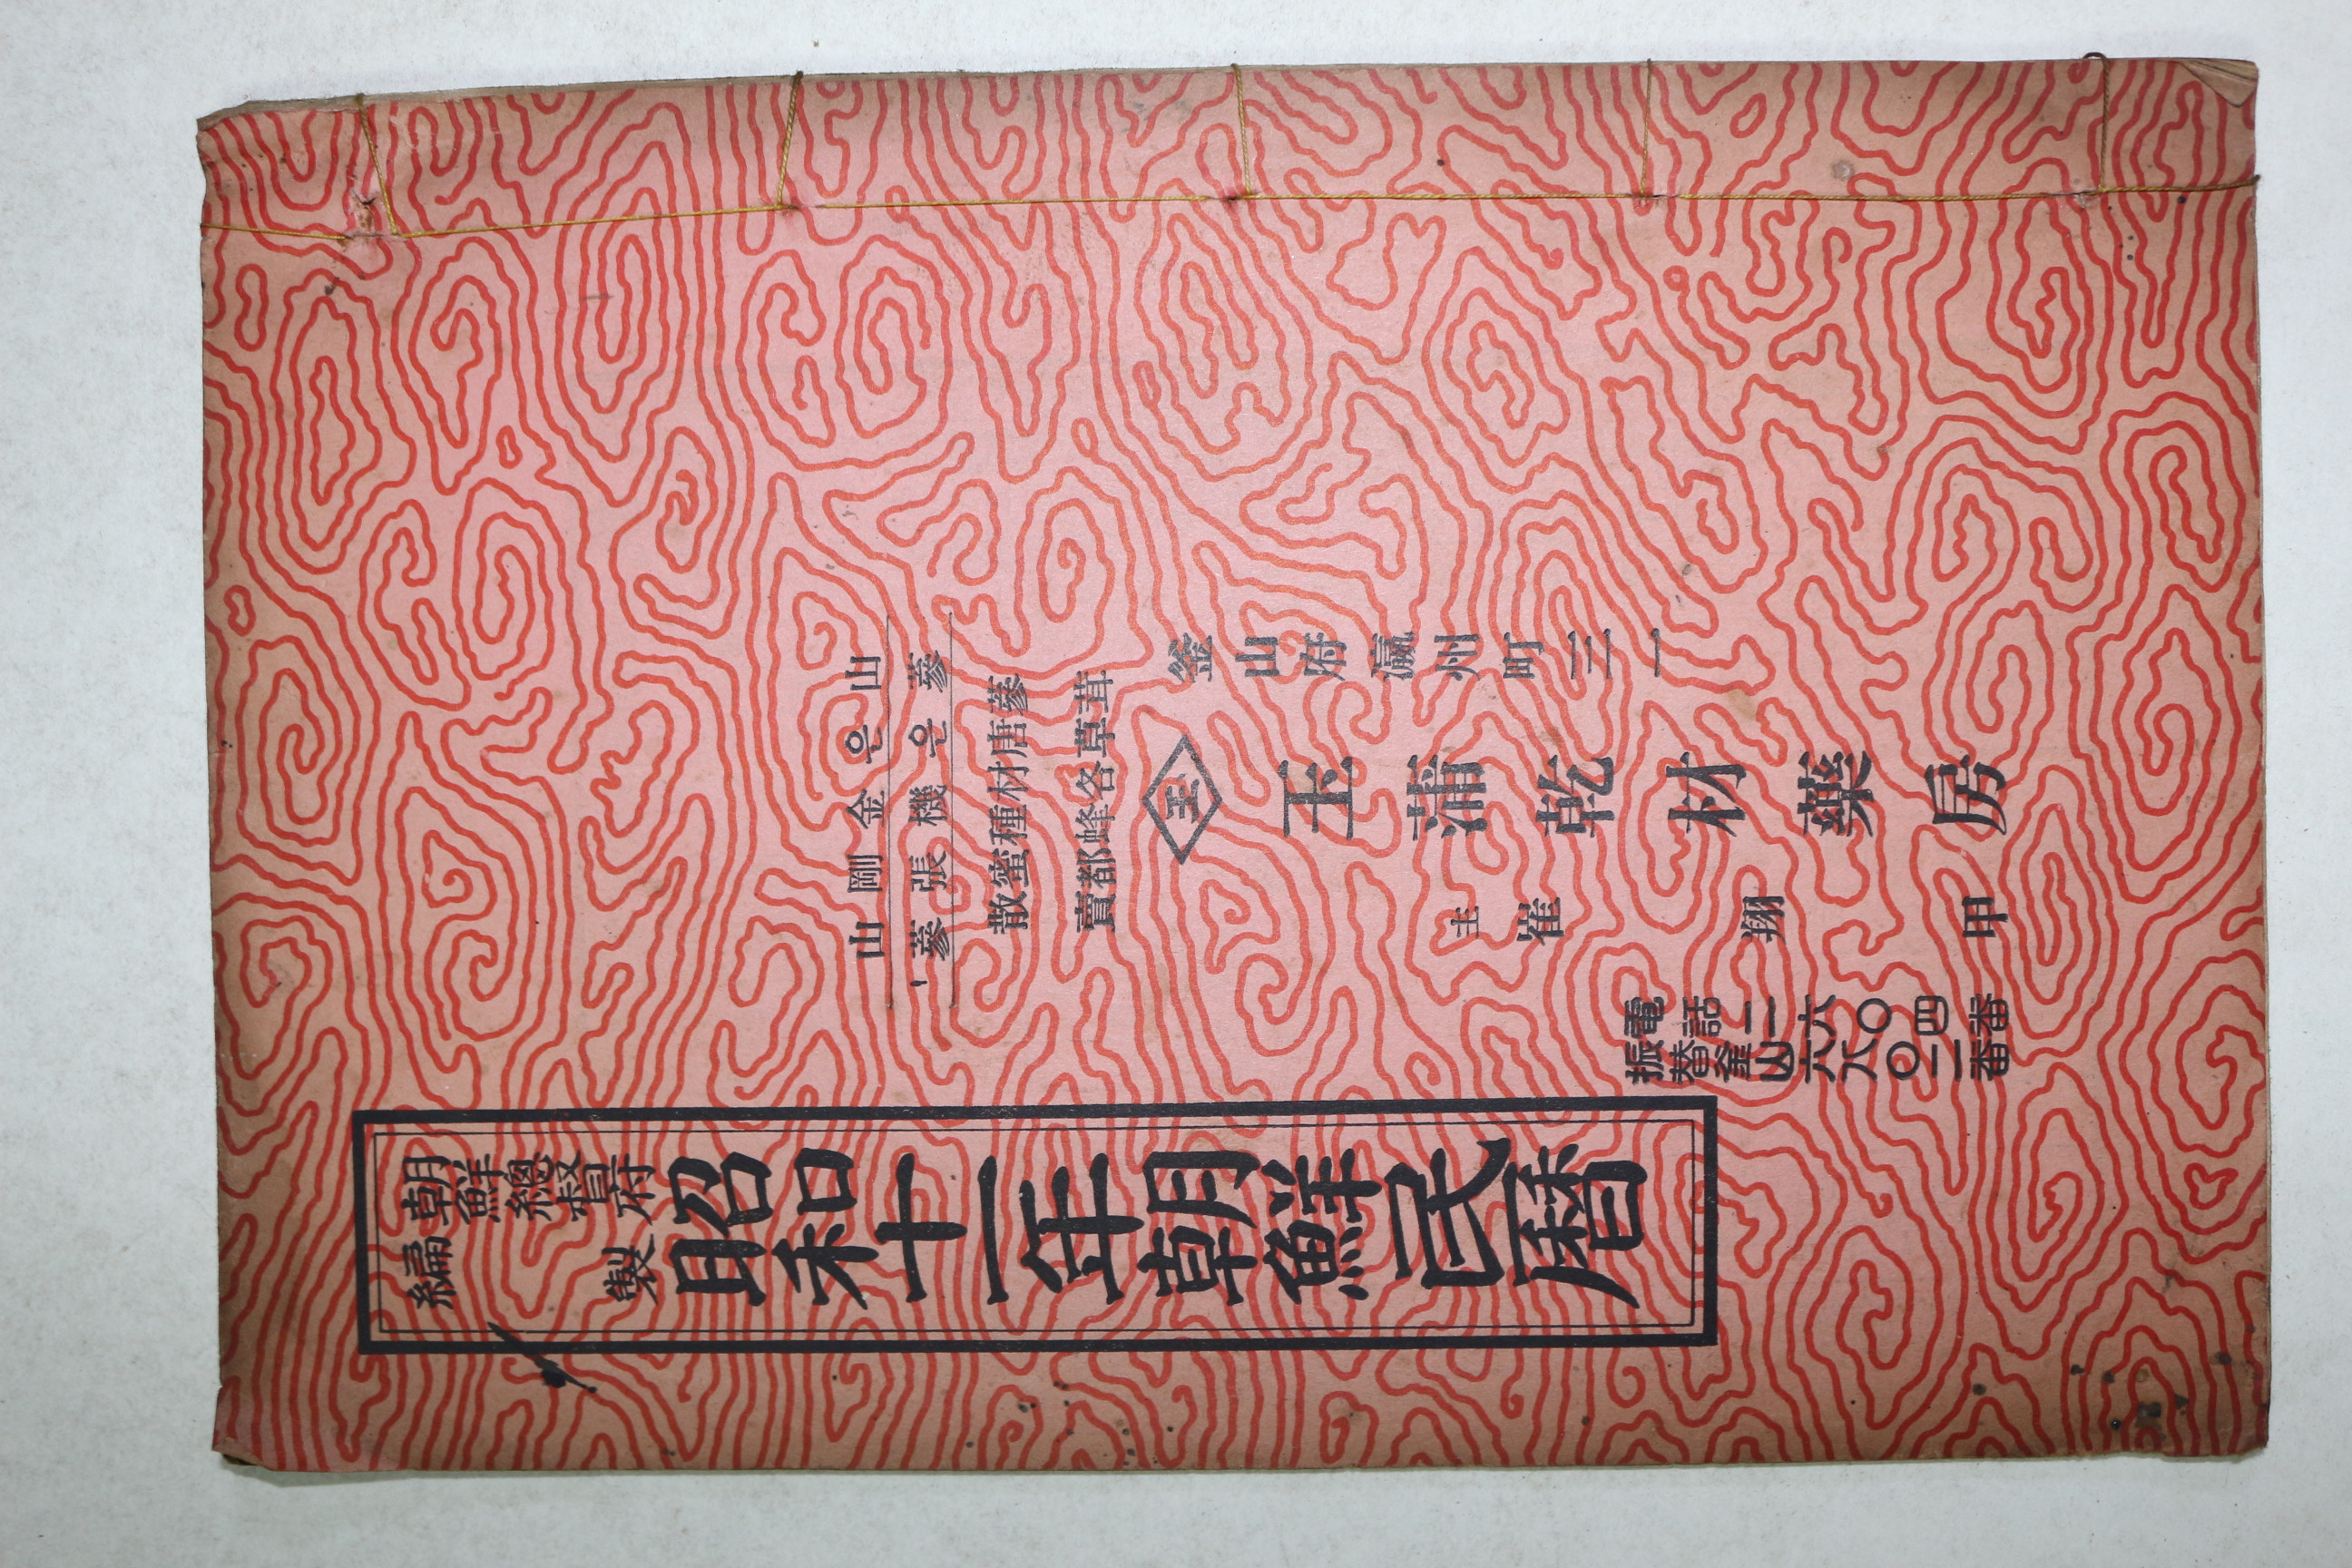 山은金剛山
蔘은機張蔘
蔘茸唐草材各種蜂蜜都散賣
釜山府瀛州町三一
玉
玉蒲乾材藥房
主 崔翔甲
電話二六〇四番
振替釜山六八〇二番
朝鮮總督府
編製
昭和十一年朝鮮民曆